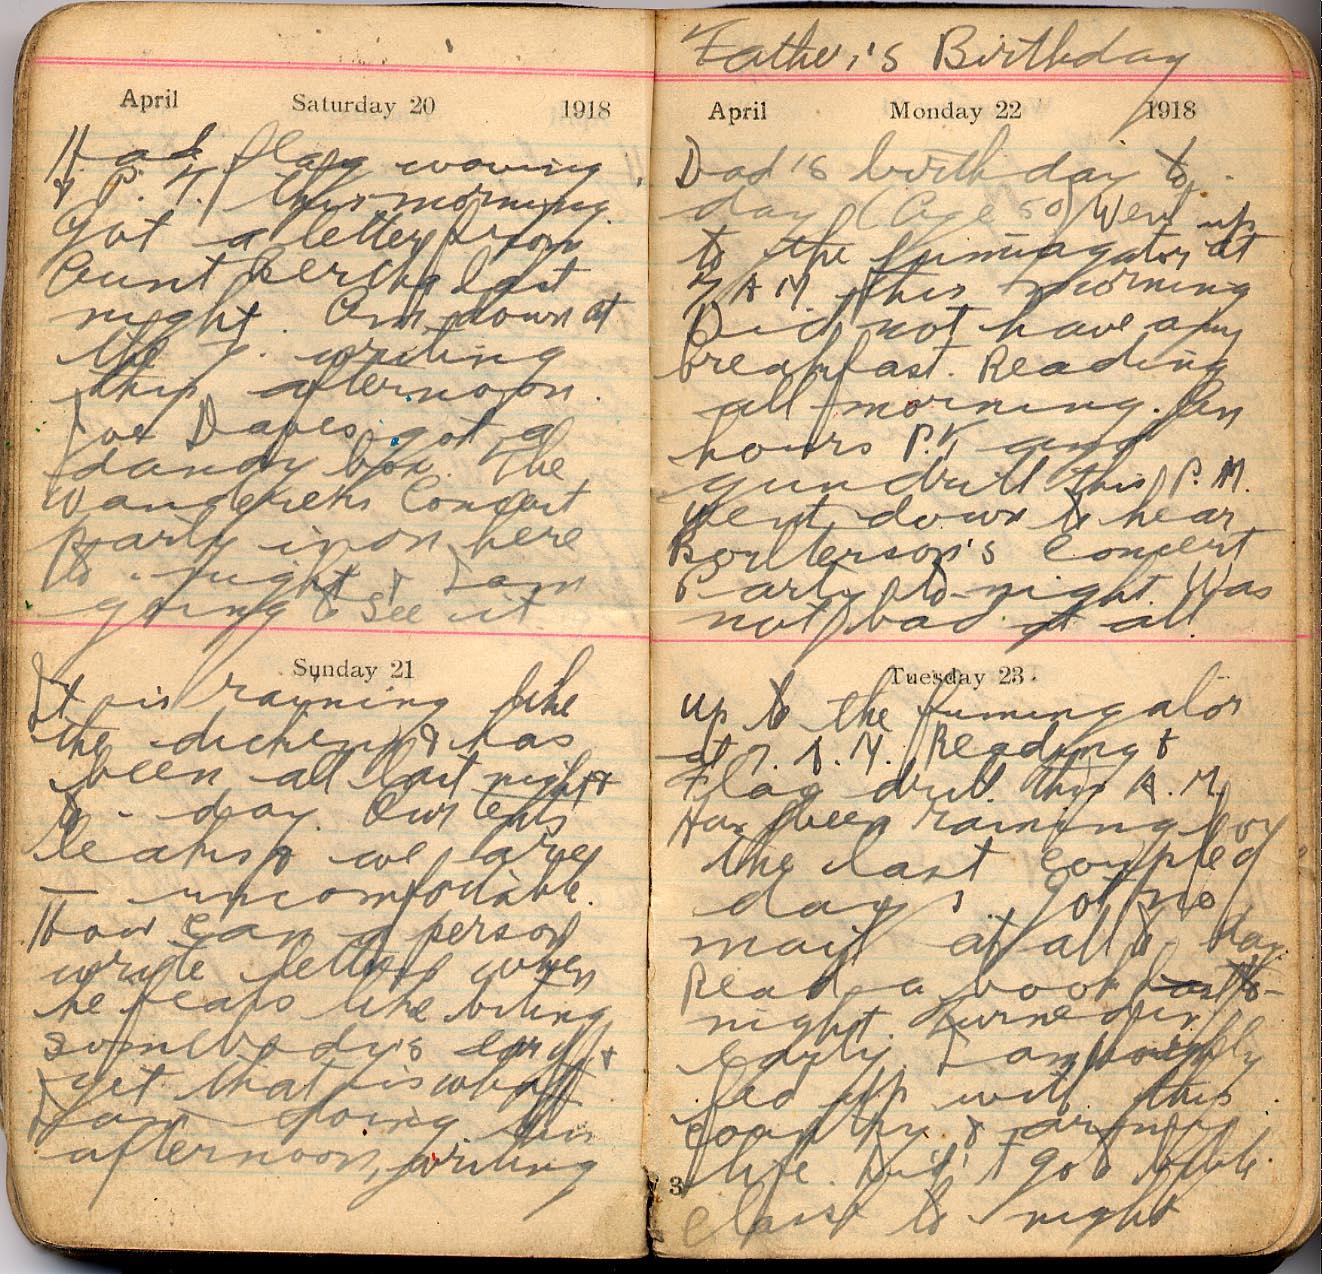 April Saturday 20 1918
Had flag waving
& P. T. this morning.
Got a letter from
Aunt Bertha last
night. Am down at
the Y. writing
this afternoon.
Joe Daves got a
dandy box. The
Wanderers Concert
party is on here
to-night & I am
going to see it
Sunday 21
It is raining like
the dickens & has
been all last night &
to-day. Our tents
leaks & we are
— uncomfortable.
How can a person
write letters when
he feals like biting
somebody's ear off &
yet that is what
I am doing this
afternoon, writing
Father's Birthday
April Monday 22 1918
Dad's birthday to
day (Age 50) Went up
to the fumigator at
7 A M this morning
Did not have any
breakfast. Reading
all morning. An
hours P.T. and
gun drill this P.M.
Went down to hear
Concert
Party to-night. Was
not bad at all.
Tuesday 23
up to the fumingator
at 7. A. M. Reading &
Flag drill this A.M.
Has been raining for
the last couple of
days. Got no
mail at all to day.
Read a book to-
night. Turned in
early. I am
fed up with this
country & army
life. Didn't go to Bible
class to-night
3